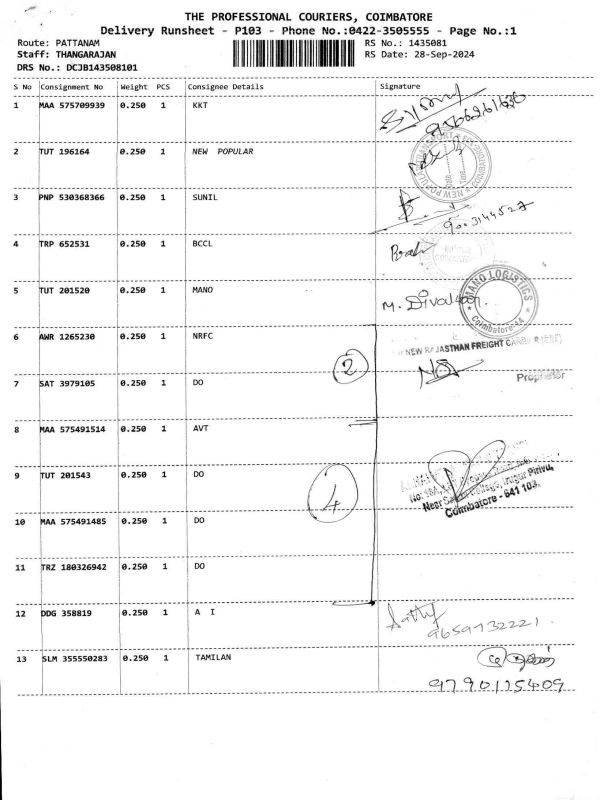 THE PROFESSIONAL COURIERS, COIMBATORE
Delivery Runsheet - P103 - Phone No.:0422-3505555 - Page No.:1
Route: PATTANAM RS No.: 1435081
Staff: THANGARAJAN RS Date: 28-Sep-2024
DRS No.: DCJB143508101
S No Consignment No Weight PCS Consignee Details Signature
1 MAA 575709939 0.250 1 KKT
2 TUT 196164 0.250 1 NEW POPULAR
3 PNP 530368366 0.250 1 SUNIL
9003144527
4 TRP 652531 0.250 1 BCCL
5 TUT 201520 0.250 1 MANO M. Divakar
MANO LOGISTICS
Coimbatore-44
6 AWR 1265230 0.250 1 NRFC
NEW RAJASTHAN FREIGHT
2
7 SAT 3979105 0.250 1 DO Proprietor
8 MAA 575491514 0.250 1 AVT
9 TUT 201543 0.250 1 DO
4
Irugur Pirivu,
Coimbatore - 641 103.
10 MAA 575491485 0.250 1 DO
11 TRZ 180326942 0.250 1 DO
12 DDG 358819 0.250 1 A I
9659732221
13 SLM 355550283 0.250 1 TAMILAN
9790175409